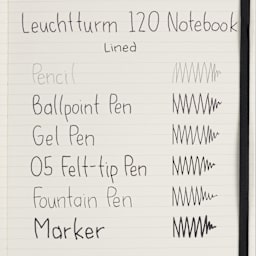 Leuchtturm 120 Notebook
Lined
Pencil
Ballpoint Pen
Gel Pen
05 Felt-tip Pen
Fountain Pen
Marker